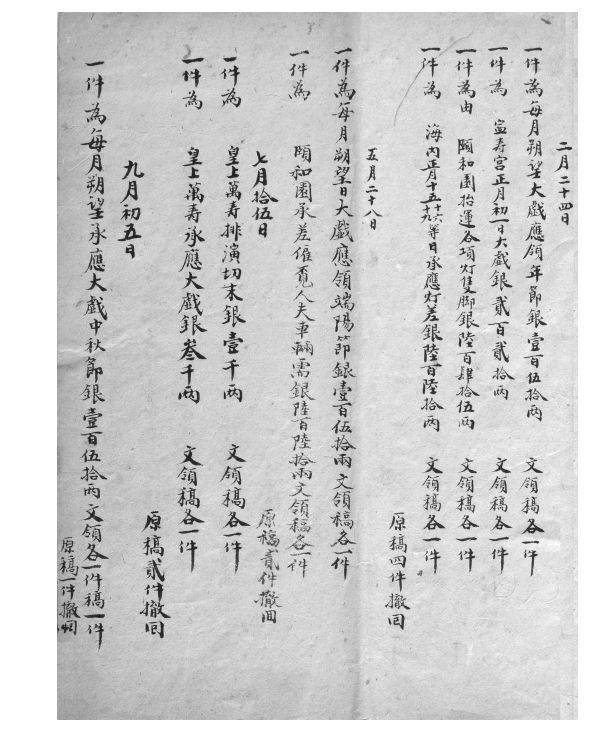 二月二十四日
一件為每月朔望大戲應領年節銀壹百伍拾两 文領稿各一件
一件為 寍寿宫正月初一日大戲銀貳百貳拾两 文領稿各一件
一件為由 頤和園抬運各項灯隻脚銀陸百肆拾伍两 文領稿各一件
一件為 海内正月十五十六十九等日承應灯差銀陸百陸拾两 文領稿各一件
原稿四件撤回
五月二十八日
一件為每月朔望日大戲應領端陽節銀壹百伍拾兩 文領稿各一件
一件為 頤和園承差僱覓人夫車輛需銀陸百陸拾兩文領稿各一件
原稿貳件撤回
七月拾伍日
一件為 皇上萬寿排演切末銀壹千两 文領稿各一件
一件為 皇上萬寿承應大戲銀叁千两 文領稿各一件
原稿貳件撤回
九月初五日
一件為每月朔望承應大戲中秋節銀壹百伍拾两文領各一件稿一件
原稿一件撤回